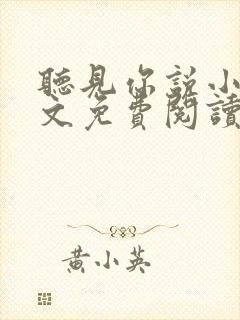 聽見你說小
文免費閱讀
黃小英